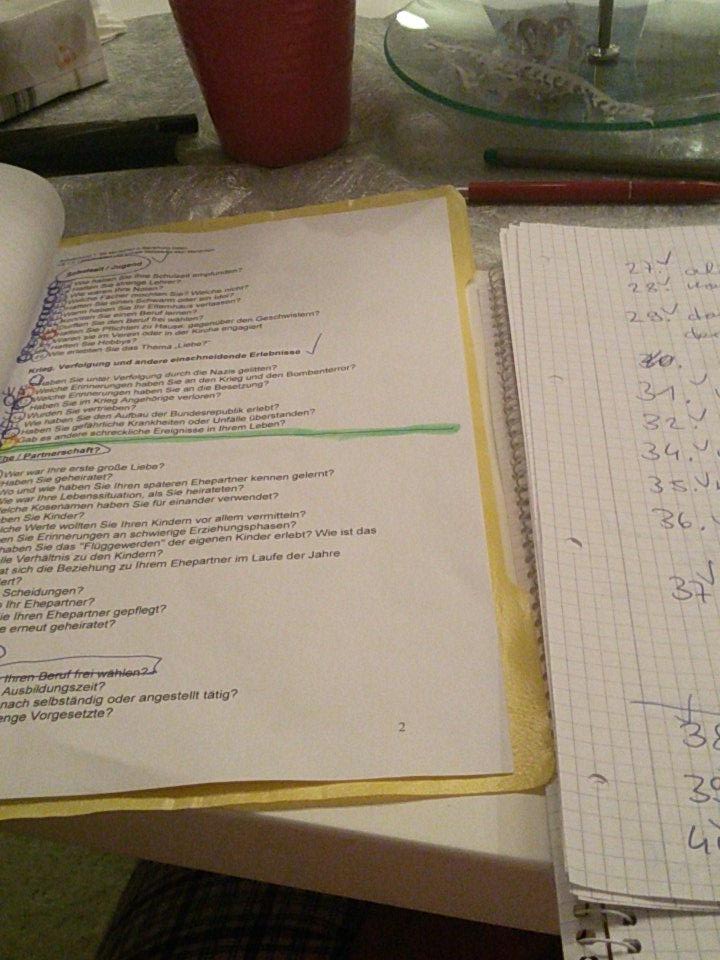 Schulzeit / Jugend
Wie haben Sie Ihre Schulzeit empfunden?
Hatten Sie strenge Lehrer?
Wie waren Ihre Noten?
Welche Fächer mochten Sie? Welche nicht?
Hatten Sie einen Schwarm oder ein Idol?
Wann haben Sie Ihr Elternhaus verlassen?
Konnten Sie einen Beruf lernen?
Durften Sie den Beruf frei wählen?
Hatten Sie Pflichten zu Hause, gegenüber den Geschwistern?
Waren sie im Verein oder in der Kirche engagiert
Hatten Sie Hobbys?
Wie erlebten Sie das Thema „Liebe?"
Krieg, Verfolgung und andere einschneidende Erlebnisse
Haben Sie unter Verfolgung durch die Nazis gelitten?
Welche Erinnerungen haben Sie an den Krieg und den Bombenterror?
Welche Erinnerungen haben Sie an die Besetzung?
Haben Sie im Krieg Angehörige verloren?
Wurden Sie vertrieben?
Wie haben Sie den Aufbau der Bundesrepublik erlebt?
Haben Sie gefährliche Krankheiten oder Unfälle überstanden?
Gab es andere schreckliche Ereignisse in Ihrem Leben?
Ehe / Partnerschaft?
Wer war Ihre erste große Liebe?
Haben Sie geheiratet?
Wo und wie haben Sie Ihren späteren Ehepartner kennen gelernt?
Wie war Ihre Lebenssituation, als Sie heirateten?
elche Kosenamen haben Sie für einander verwendet?
ben Sie Kinder?
lche Werte wollten Sie Ihren Kindern vor allem vermitteln?
en Sie Erinnerungen an schwierige Erziehungsphasen?
haben Sie das "Flüggewerden" der eigenen Kinder erlebt? Wie ist das
elle Verhältnis zu den Kindern?
at sich die Beziehung zu Ihrem Ehepartner im Laufe der Jahre
ert?
Scheidungen?
Ihr Ehepartner?
ie Ihren Ehepartner gepflegt?
e erneut geheiratet?
Ihren Beruf frei wählen?
Ausbildungszeit?
nach selbständig oder angestellt tätig?
enge Vorgesetzte?
2
27.
28.
29.
30.
31.
32.
34.
35.
36.
37
38
39